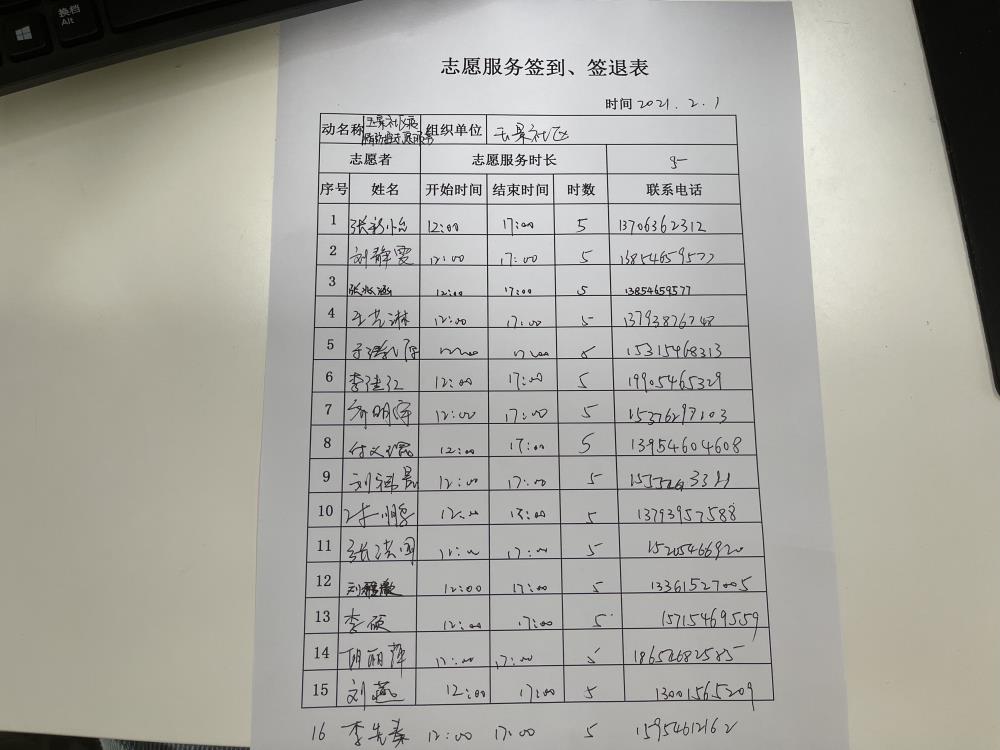 换档
Alt
志愿服务签到、签退表
时间 2021.2.1
动名称 玉景社区 组织单位 玉景社区
志愿者 志愿服务时长 5
序号 姓名 开始时间 结束时间 时数 联系电话
1 12:00 17:00 5 13706362312
2 刘静雯 12:00 17:00 5 13854659577
3 12:00 17:00 5 13854659577
4 12:00 17:00 5 13793876748
5 12:00 17:00 5 15315468313
6 李佳红 12:00 17:00 5 19905465329
7 12:00 17:00 5 15376297103
8 付文 12:00 17:00 5 13954604608
9 12:00 17:00 5
10 12:00 5 13793957588
11 12:00 17:00 5 15205466920
12 刘 12:00 17:00 5 13361527005
13 李硕 12:00 17:00 5 15715469559
14 胡丽萍 12:00 17:00 5 18654682585
15 刘燕 12:00 17:00 5 13001565209
16 李先秦 12:00 17:00 5 15954612162